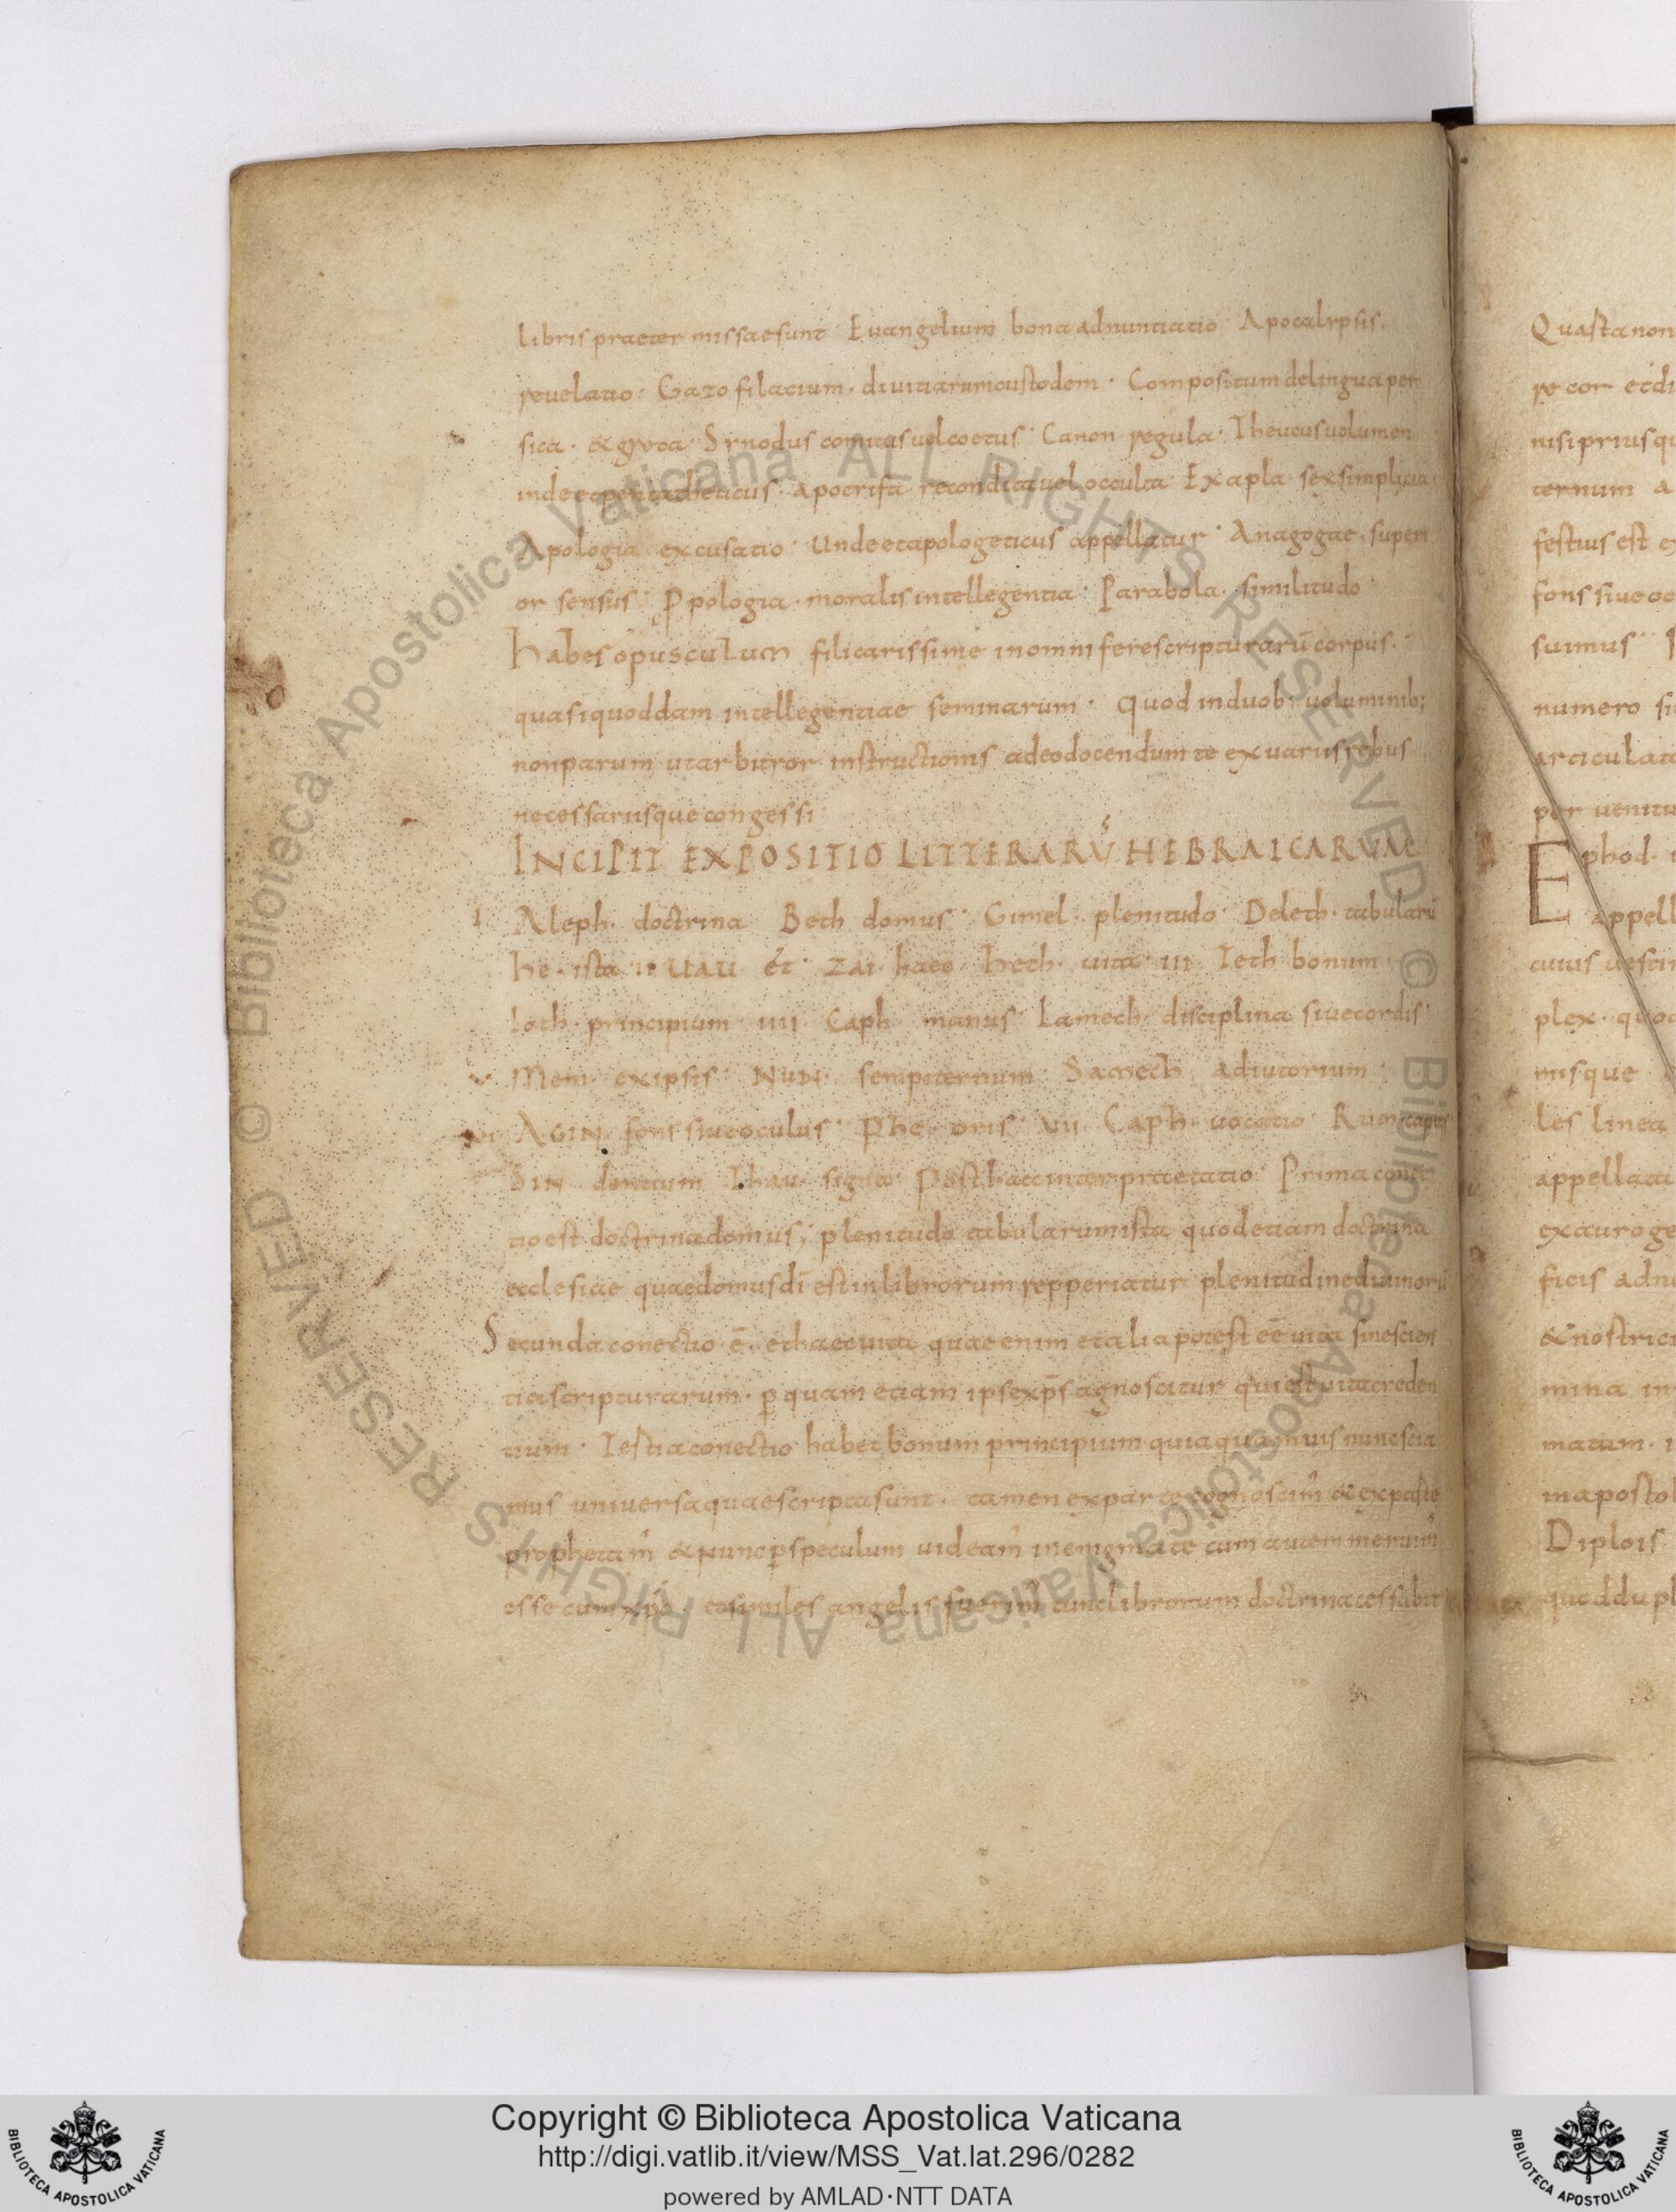 libris praeter missae sunt · Euangelium bona adnuntiatio · Apocalypsis ·
reuelatio · Gazofilacium · diuitiarum custodem · Compositum de lingua per
sica · & greca · Synodus comitas uel coetus · Canon regula · Theucus uolumen
inde et pentatheucus · apocrifa recondita uel occulta Exapla sex simplicia
Apologia excusatio · Unde et apologeticus appellatur · Anagogae · superi
or sensus · Ppologia · moralis intellegentia · Parabola · similitudo ·
habes opusculum fili carissime in omni fere scripturarū corpus ·
quasi quoddam intellegentiae seminarum · quod in duob· uoluminib;
non parum ut arbitror instructionis adeo docendum te ex uariis rebus
necessariisque congessi
INCIPIT EXPOSITIO LITTERARŪ HEBRAICARUM
I Aleph · doctrina Beth domus · Gimel · plenitudo · Deleth · tabularū
he · ista · II · UAU et · Zai · haec · heth · uita · III Teth bonum
Ioth · principium · IIII · Caph manus · Lamech · disciplina siue cordis ·
V Mem · ex ipsis · NUN · sempiternum · Samech adiutorium ·
VI AGIN · fons siue oculus · Phe · oris · VII · Caph · uocatio · capitis
SIN dentium Thau · signa · Post haec interpraetatio · Prima conec
tio est doctrina domus; plenitudo tabularum ista quod etiam doctrina
ecclesiae quae domus dī est in librorum repperiatur plenitudine diuinorū
Secunda conectio · ē · et haec uita quae enim et alia potest eē uita sine scien
tia scripturarum · p quam etiam ipse xps agnoscitur qui est uita creden
tium · Tertia conectio habet bonum principium quia quamuis nunc scia
mus uniuersa quae scripta sunt · tamen ex parte cognoscim & ex parte
prophetam & nunc p speculum uideam in enigmate cum autem meruim
esse cum xpo & similes angelis fuerim tunc librorum doctrina cessabit
Quasta non
re cor et di
nisi prius qu
ternum a
festius est e
fons siue oc
suimus
numero si
articulat
per uenitu
Ephod ·
appell
cuius uesti
plex · quod
misque
les linea
appellata
ex auro ge
ficis adn
& nostri
mina in
matum ·
in apostol
Diplois
quod dupl
© Biblioteca Apostolica Vaticana ALL RIGHTS RESERVED © Biblioteca Apostolica Vaticana ALL RIGHTS RESERVED
BIBLIOTECA APOSTOLICA VATICANA
Copyright © Biblioteca Apostolica Vaticana
http://digi.vatlib.it/view/MSS_Vat.lat.296/0282
powered by AMLAD·NTT DATA
BIBLIOTECA APOSTOLICA VATICANA